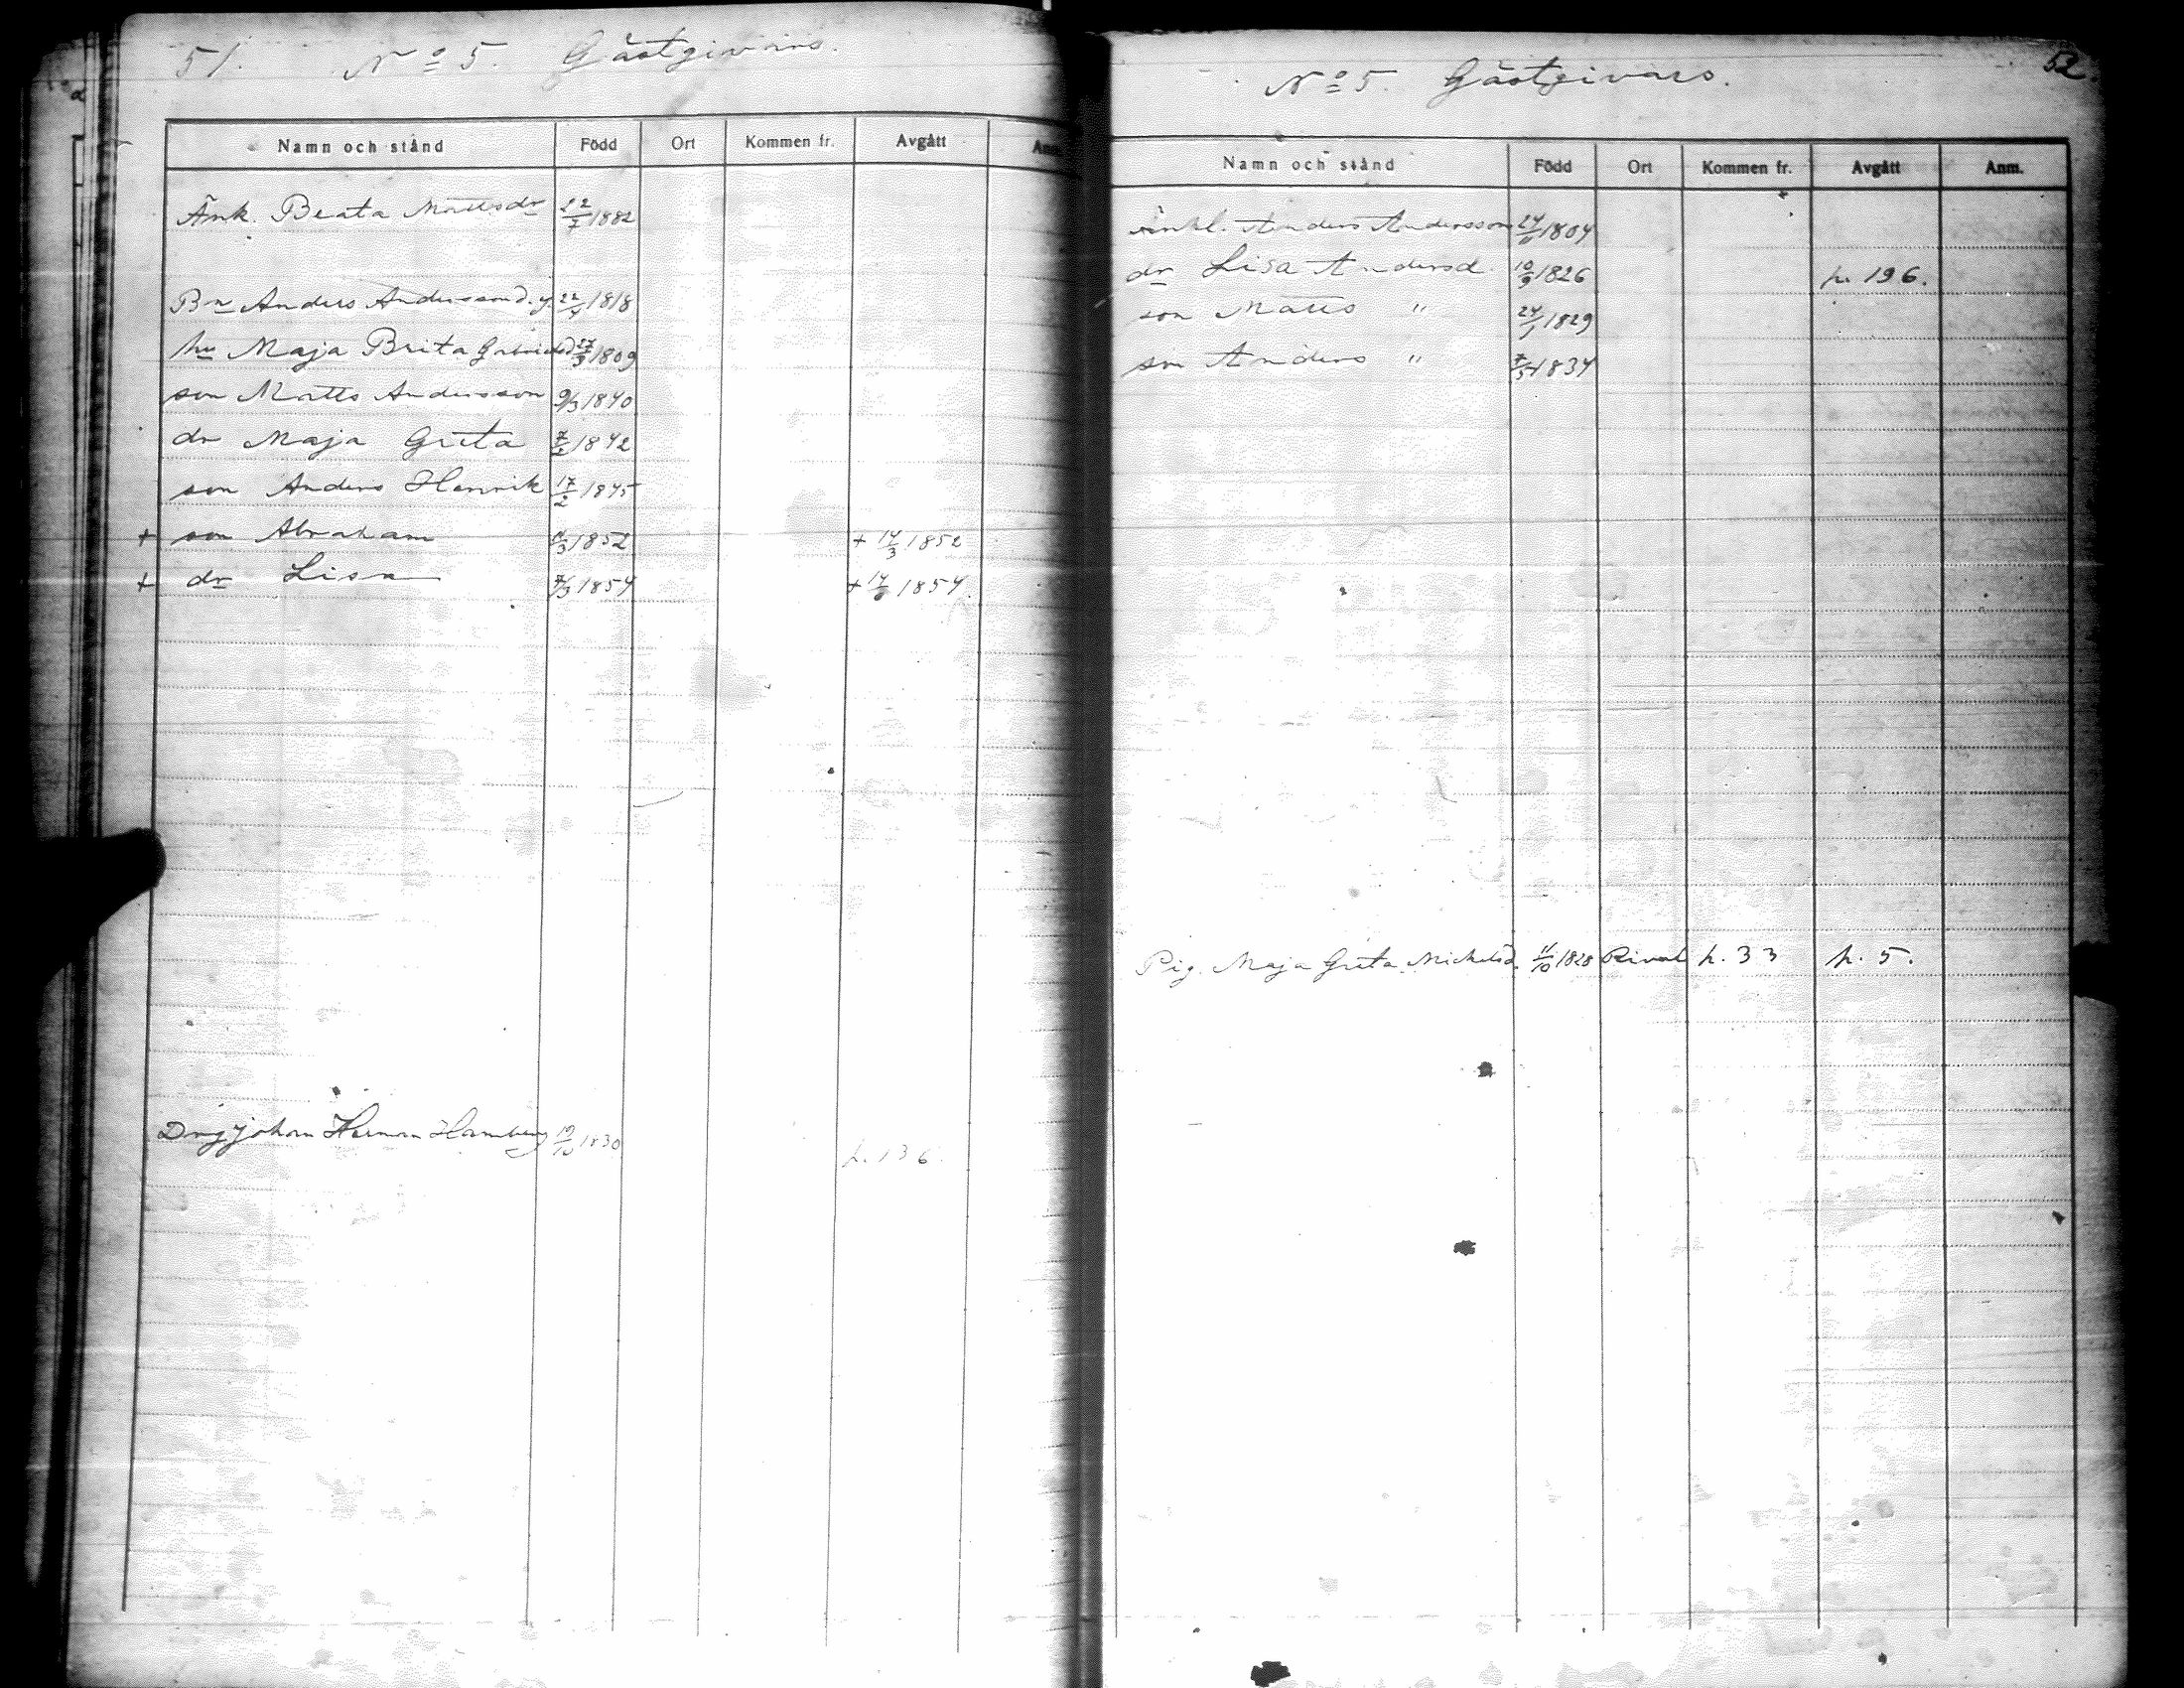 51. No 5. Gästgivars.
Namn och stånd Född Ort Kommen fr. Avgått Anm.
Änk. Beata Mattsdr 22/7 1882
Bn Anders Andersson d.y. 22/4 1818
hu Maja Brita Gabrielsd 27/3 1809
son Matts Andersson 9/3 1840
dr Maja Greta 1842
son Anders Henrik 17/2 1845
+ son Abraham 1852 + 14/3 1852
+ dr Lisa 1854 + 1854.
Drg Johan Herman Hamberg 1830
p. 136.
52.
No 5. Gästgivars.
Namn och stånd Född Ort Kommen fr. Avgått Anm.
Änkl. Anders Andersson 1804
dr Lisa Andersd. 10/9 1826 p. 196.
son Matts " 24/1 1829
son Anders " 7/5 1834
Pig. Maja Greta Michelsd. 11/10 1828 Rival p. 33 p. 5.